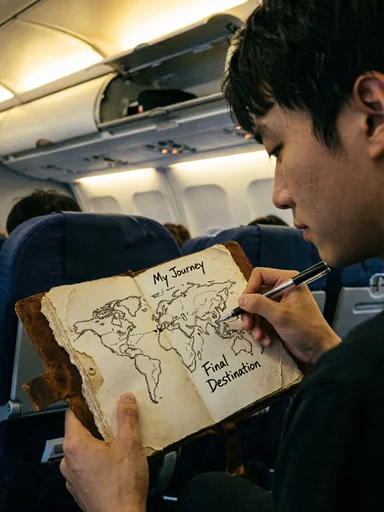 My Journey
Final
Destination